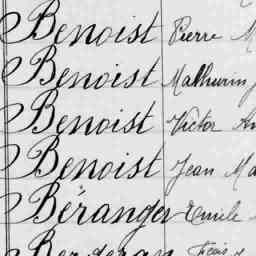 Benoist Pierre M
Benoist Mathurin J
Benoist Victor An
Benoist Jean Ma
Béranger Emile